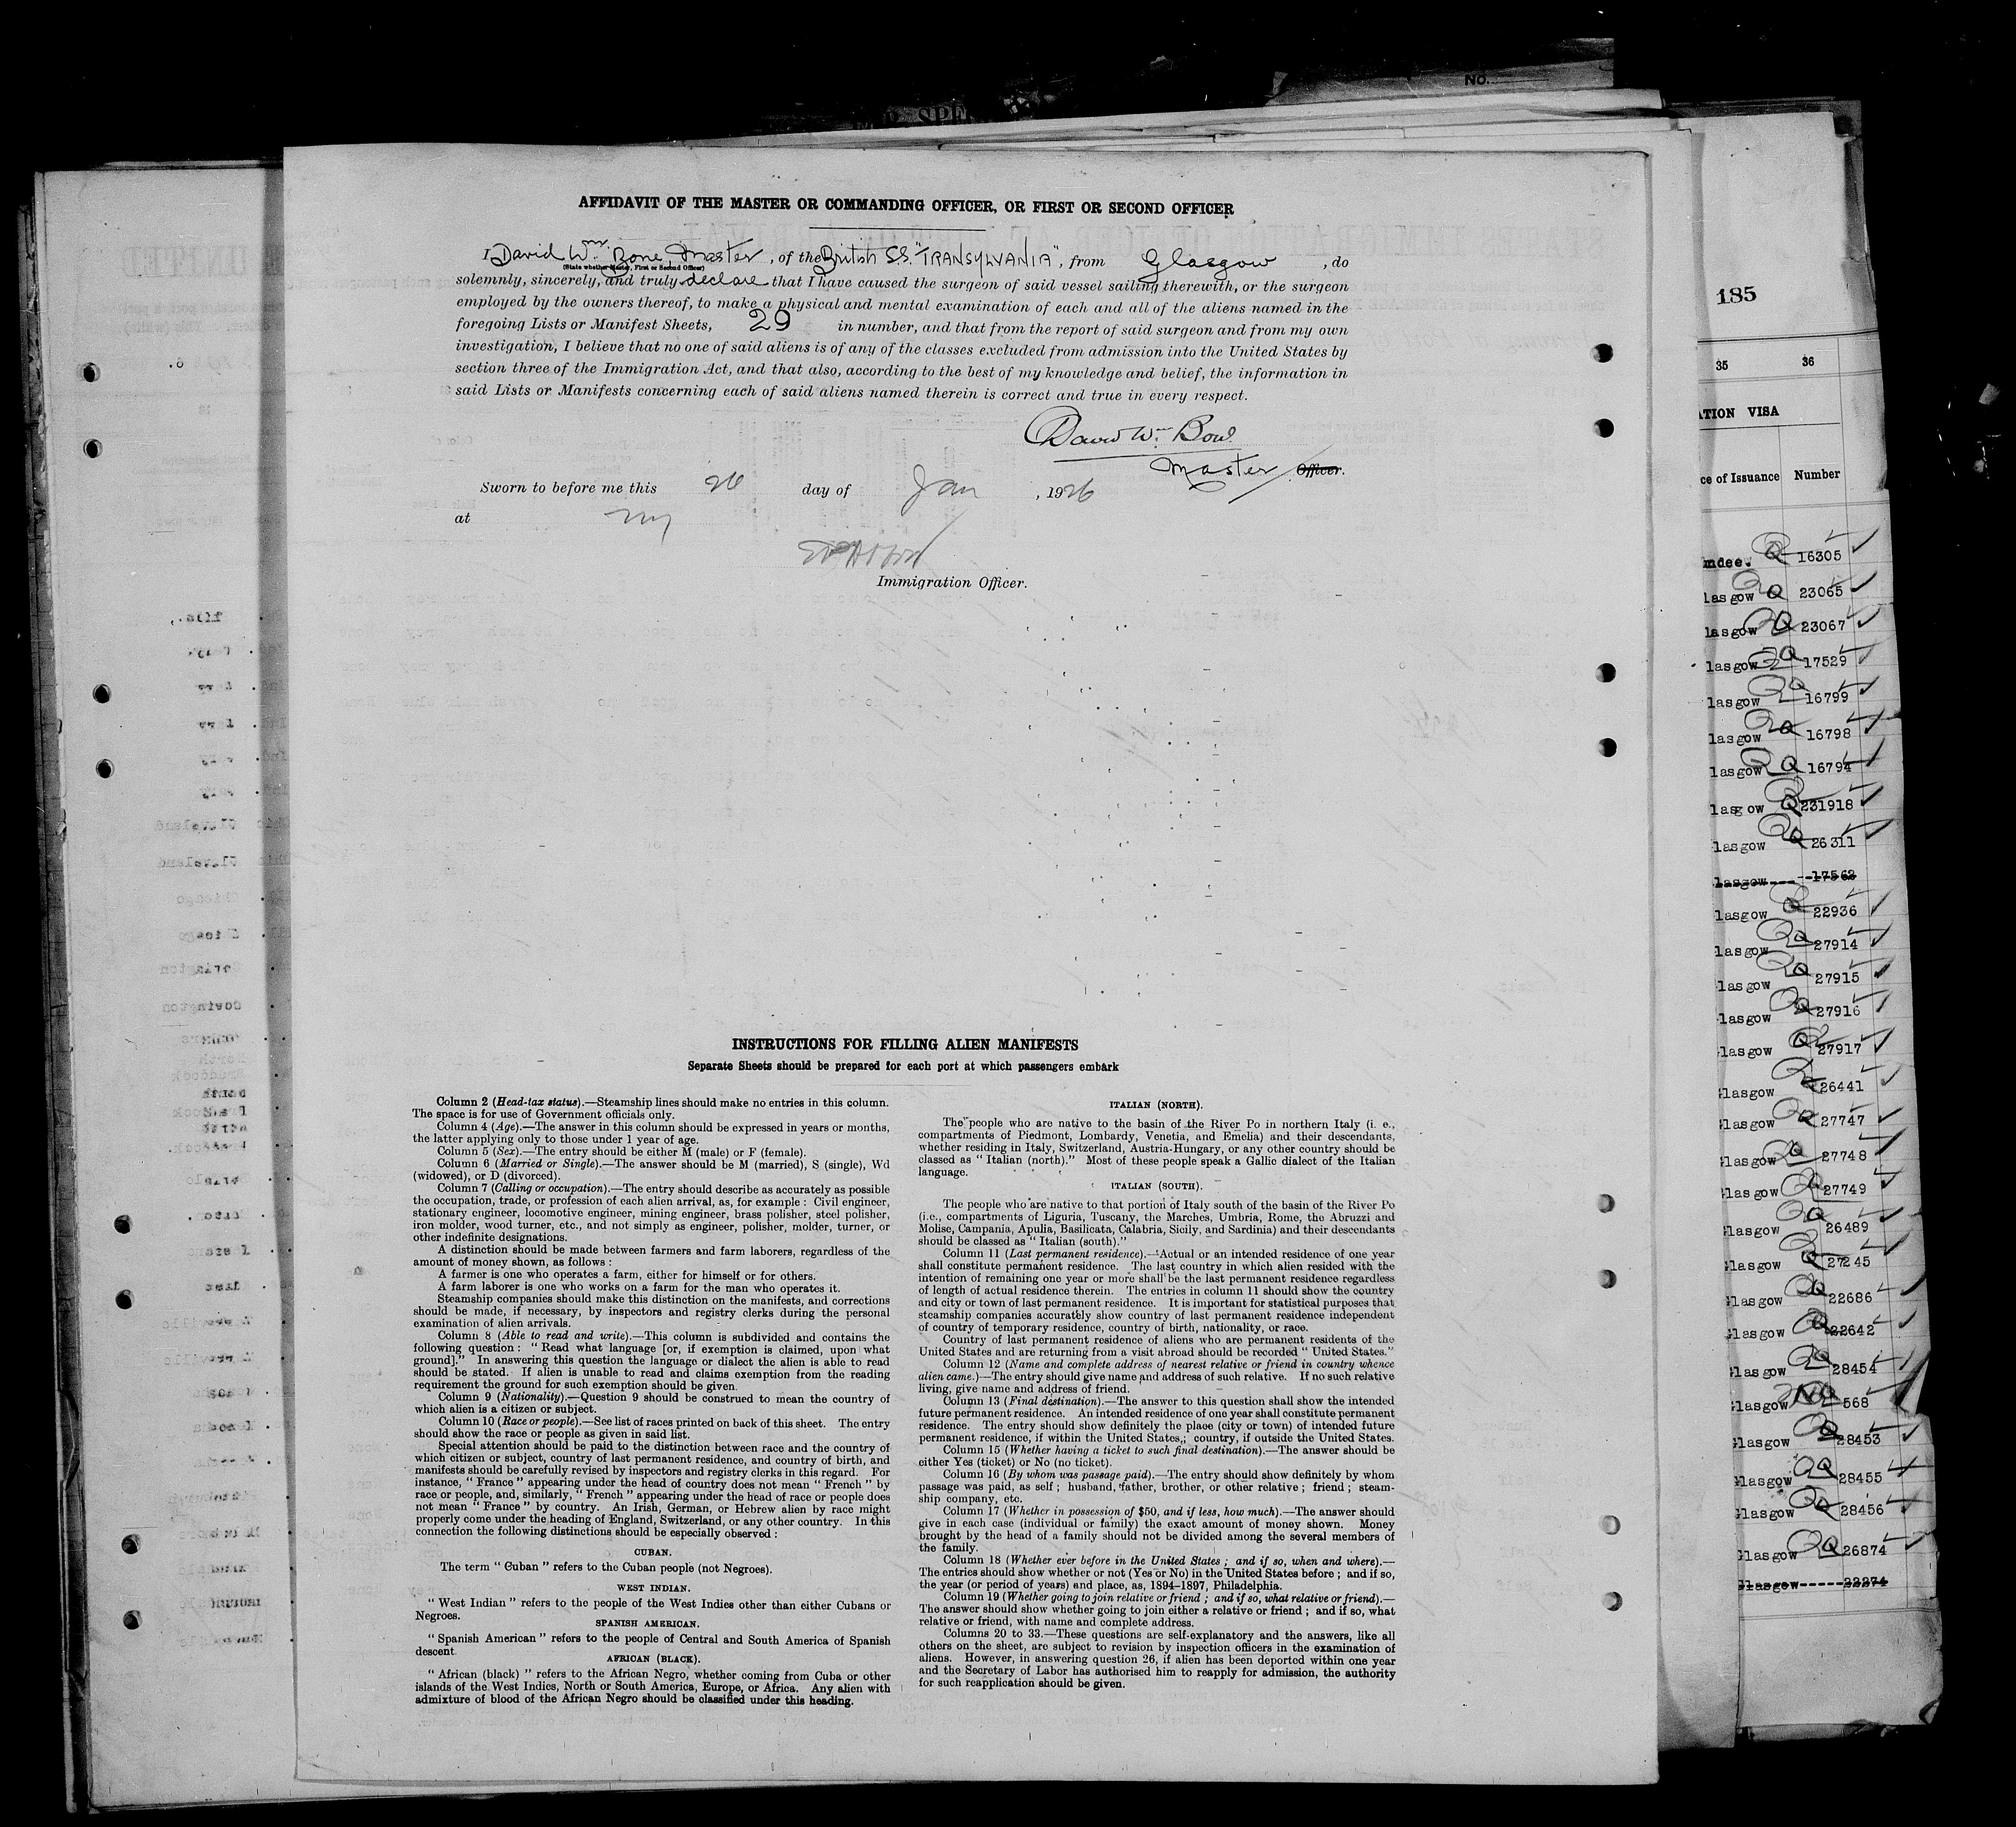 NO.
AFFIDAVIT OF THE MASTER OR COMMANDING OFFICER, OR FIRST OR SECOND OFFICER
I David Wm. Bone, Master, of the British SS. "TRANSYLVANIA", from Glasgow, do
(State whether Master, First or Second Officer)
solemnly, sincerely, and truly declare that I have caused the surgeon of said vessel sailing therewith, or the surgeon
employed by the owners thereof, to make a physical and mental examination of each and all of the aliens named in the
foregoing Lists or Manifest Sheets, 29 in number, and that from the report of said surgeon and from my own
investigation, I believe that no one of said aliens is of any of the classes excluded from admission into the United States by
section three of the Immigration Act, and that also, according to the best of my knowledge and belief, the information in
said Lists or Manifests concerning each of said aliens named therein is correct and true in every respect.
David Wm. Bone
Master Officer.
Sworn to before me this 26 day of Jan, 1926
at NY
Immigration Officer.
INSTRUCTIONS FOR FILLING ALIEN MANIFESTS
Separate Sheets should be prepared for each port at which passengers embark
Column 2 (Head-tax status).—Steamship lines should make no entries in this column.
The space is for use of Government officials only.
Column 4 (Age).—The answer in this column should be expressed in years or months,
the latter applying only to those under 1 year of age.
Column 5 (Sex).—The entry should be either M (male) or F (female).
Column 6 (Married or Single).—The answer should be M (married), S (single), Wd
(widowed), or D (divorced).
Column 7 (Calling or occupation).—The entry should describe as accurately as possible
the occupation, trade, or profession of each alien arrival, as, for example : Civil engineer,
stationary engineer, locomotive engineer, mining engineer, brass polisher, steel polisher,
iron molder, wood turner, etc., and not simply as engineer, polisher, molder, turner, or
other indefinite designations.
A distinction should be made between farmers and farm laborers, regardless of the
amount of money shown, as follows :
A farmer is one who operates a farm, either for himself or for others.
A farm laborer is one who works on a farm for the man who operates it.
Steamship companies should make this distinction on the manifests, and corrections
should be made, if necessary, by inspectors and registry clerks during the personal
examination of alien arrivals.
Column 8 (Able to read and write).—This column is subdivided and contains the
following question : “ Read what language [or, if exemption is claimed, upon what
ground].” In answering this question the language or dialect the alien is able to read
should be stated. If alien is unable to read and claims exemption from the reading
requirement the ground for such exemption should be given.
Column 9 (Nationality).—Question 9 should be construed to mean the country of
which alien is a citizen or subject.
Column 10 (Race or people).—See list of races printed on back of this sheet. The entry
should show the race or people as given in said list.
Special attention should be paid to the distinction between race and the country of
which citizen or subject, country of last permanent residence, and country of birth, and
manifests should be carefully revised by inspectors and registry clerks in this regard. For
instance, “ France ” appearing under the head of country does not mean “ French ” by
race or people, and, similarly, “ French ” appearing under the head of race or people does
not mean “ France ” by country. An Irish, German, or Hebrew alien by race might
properly come under the heading of England, Switzerland, or any other country. In this
connection the following distinctions should be especially observed :
CUBAN.
The term “ Cuban ” refers to the Cuban people (not Negroes).
WEST INDIAN.
“ West Indian ” refers to the people of the West Indies other than either Cubans or
Negroes.
SPANISH AMERICAN.
“ Spanish American ” refers to the people of Central and South America of Spanish
descent
AFRICAN (BLACK).
“ African (black) ” refers to the African Negro, whether coming from Cuba or other
islands of the West Indies, North or South America, Europe, or Africa. Any alien with
admixture of blood of the African Negro should be classified under this heading.
ITALIAN (NORTH).
The people who are native to the basin of the River Po in northern Italy (i. e.,
compartments of Piedmont, Lombardy, Venetia, and Emelia) and their descendants,
whether residing in Italy, Switzerland, Austria-Hungary, or any other country should be
classed as “ Italian (north).” Most of these people speak a Gallic dialect of the Italian
language.
ITALIAN (SOUTH).
The people who are native to that portion of Italy south of the basin of the River Po
(i.e., compartments of Liguria, Tuscany, the Marches, Umbria, Rome, the Abruzzi and
Molise, Campania, Apulia, Basilicata, Calabria, Sicily, and Sardinia) and their descendants
should be classed as “ Italian (south).”
Column 11 (Last permanent residence).—Actual or an intended residence of one year
shall constitute permanent residence. The last country in which alien resided with the
intention of remaining one year or more shall be the last permanent residence regardless
of length of actual residence therein. The entries in column 11 should show the country
and city or town of last permanent residence. It is important for statistical purposes that
steamship companies accurately show country of last permanent residence independent
of country of temporary residence, country of birth, nationality, or race.
Country of last permanent residence of aliens who are permanent residents of the
United States and are returning from a visit abroad should be recorded “ United States.”
Column 12 (Name and complete address of nearest relative or friend in country whence
alien came.)—The entry should give name and address of such relative. If no such relative
living, give name and address of friend.
Column 13 (Final destination).—The answer to this question shall show the intended
future permanent residence. An intended residence of one year shall constitute permanent
residence. The entry should show definitely the place (city or town) of intended future
permanent residence, if within the United States,; country, if outside the United States.
Column 15 (Whether having a ticket to such final destination).—The answer should be
either Yes (ticket) or No (no ticket).
Column 16 (By whom was passage paid).—The entry should show definitely by whom
passage was paid, as self ; husband, father, brother, or other relative ; friend ; steam-
ship company, etc.
Column 17 (Whether in possession of $50, and if less, how much).—The answer should
give in each case (individual or family) the exact amount of money shown. Money
brought by the head of a family should not be divided among the several members of
the family.
Column 18 (Whether ever before in the United States ; and if so, when and where).—
The entries should show whether or not (Yes or No) in the United States before ; and if so,
the year (or period of years) and place, as, 1894–1897, Philadelphia.
Column 19 (Whether going to join relative or friend ; and if so, what relative or friend).—
The answer should show whether going to join either a relative or friend ; and if so, what
relative or friend, with name and complete address.
Columns 20 to 33.—These questions are self-explanatory and the answers, like all
others on the sheet, are subject to revision by inspection officers in the examination of
aliens. However, in answering question 26, if alien has been deported within one year
and the Secretary of Labor has authorised him to reapply for admission, the authority
for such reapplication should be given.
185
35 36
ATION VISA
ce of Issuance Number
ndee. Q 16305
lasgow Q 23065
lasgow Q 23067
lasgow Q 17529
lasgow Q 16799
lasgow Q 16798
lasgow Q 16794
lasgow Q 231918
lasgow Q 26311
lasgow 17562
lasgow Q 22936
lasgow Q 27914
lasgow Q 27915
lasgow Q 27916
lasgow Q 27917
lasgow Q 26441
lasgow Q 27747
lasgow Q 27748
lasgow Q 27749
lasgow Q 26489
lasgow Q 27245
Glasgow Q 22686
Glasgow Q 22642
Glasgow Q 28454
Glasgow NQ 568
Glasgow Q 28453
Glasgow Q 28455
Glasgow Q 28456
Glasgow Q 26874
Glasgow-----22274